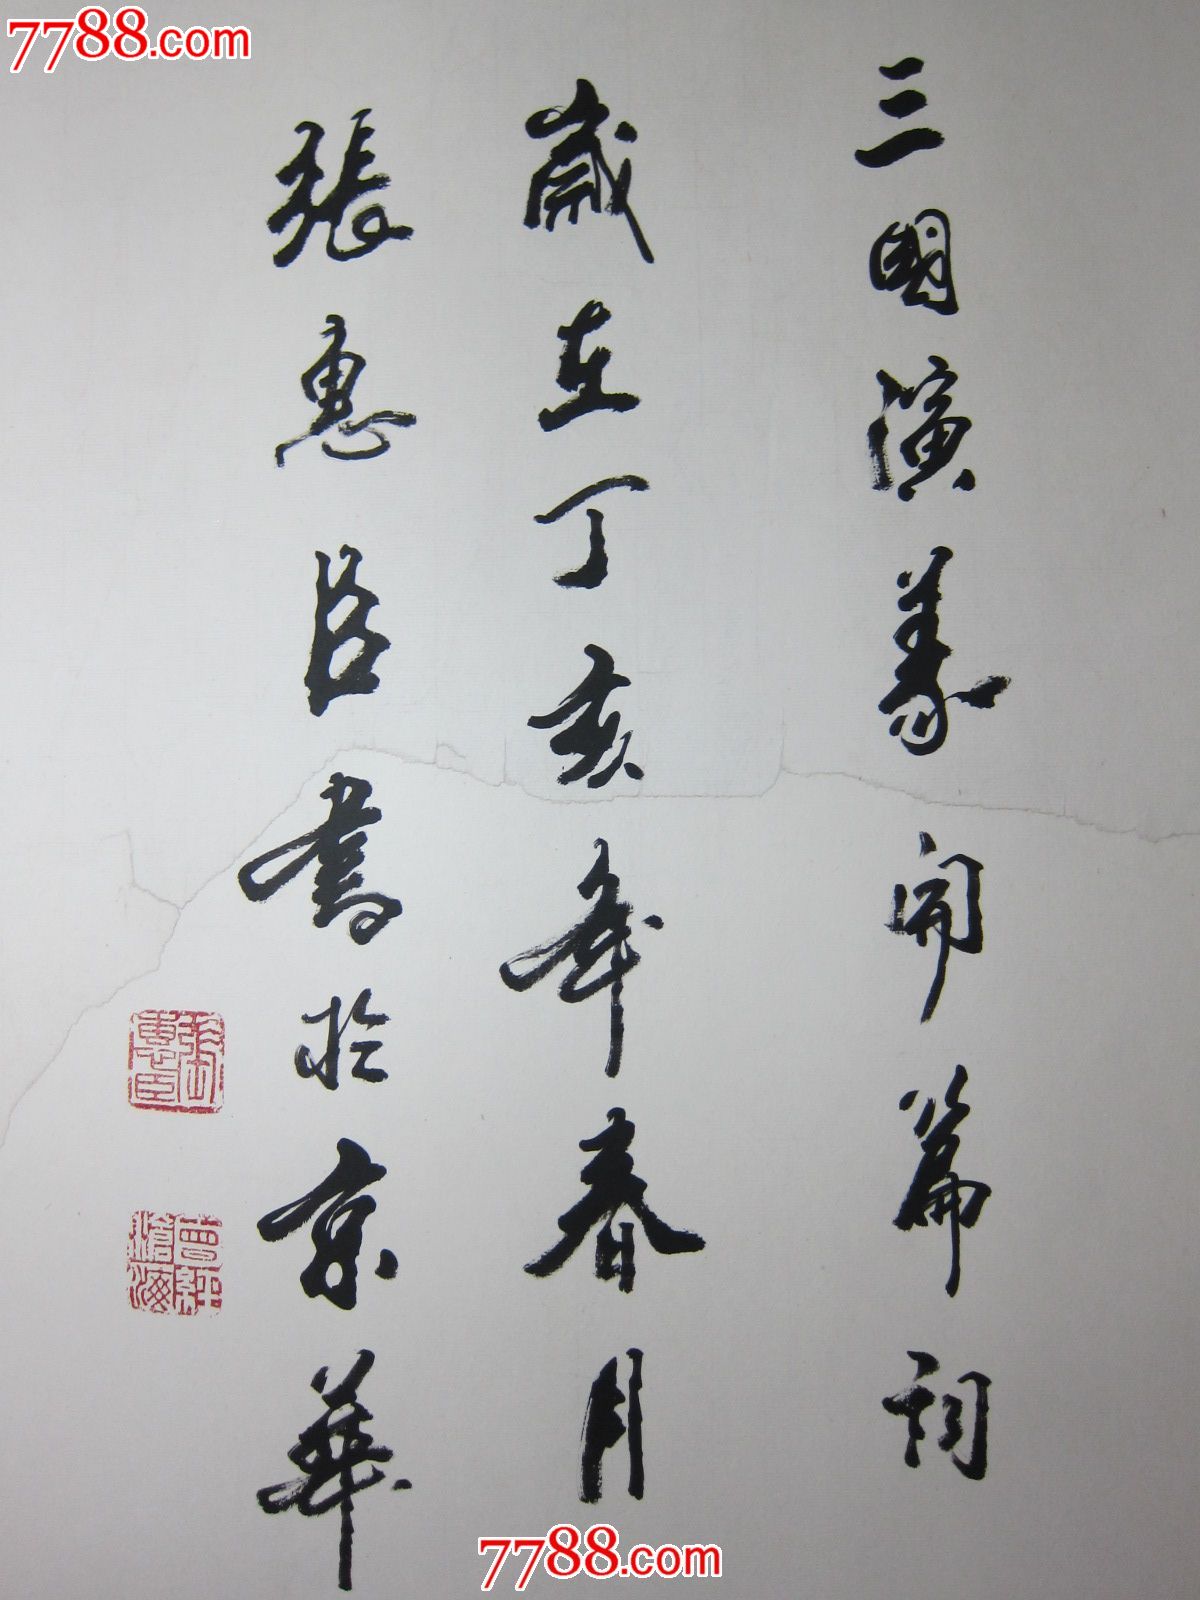 7788.com
三國演義開篇詞
歲在丁亥年春月
張惠臣書於京華
張惠臣
曾經滄海
7788.com